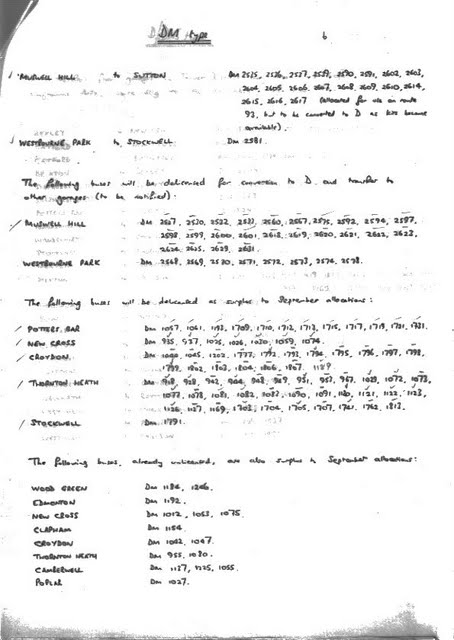 DM type 6
MUSWELL HILL to SUTTON DM 2525, 2526, 2527, 2529, 2590, 2591, 2602, 2603,
2604, 2605, 2606, 2607, 2608, 2609, 2610, 2614,
2615, 2616, 2617 (allocated for use on route
93, but to be converted to D as kits become
available).
WESTBOURNE PARK to STOCKWELL DM 2581.
The following buses will be delicensed for conversion to D and transfer to
other garages (to be notified):
MUSWELL HILL DM 2527, 2530, 2532, 2560, 2567, 2575, 2592, 2594, 2597,
2598, 2599, 2600, 2601, 2618, 2619, 2620, 2621, 2622, 2623,
2624, 2625, 2629, 2631.
WESTBOURNE PARK DM 2568, 2569, 2570, 2571, 2572, 2573, 2574, 2578.
The following buses will be delicensed as surplus to September allocations:
POTTERS BAR DM 1057, 1061, 1709, 1710, 1712, 1713, 1715, 1717, 1719, 1721, 1731.
NEW CROSS DM 935, 937, 1025, 1026, 1030, 1059, 1074.
CROYDON DM 1045, 1202, 1777, 1792, 1793, 1794, 1795, 1796, 1797, 1798,
1799, 1802, 1803, 1804, 1806, 1807, 1129
THORNTON HEATH DM 918, 928, 942, 944, 948, 949, 951, 953, 957, 1029, 1072, 1073,
1077, 1078, 1081, 1082, 1083, 1090, 1091, 1120, 1121, 1122, 1123,
1126, 1127, 1169, 1703, 1704, 1705, 1707, 1741, 1762, 1813.
STOCKWELL DM 1791.
The following buses, already unlicensed, are also surplus to September allocations:
WOOD GREEN DM 1184, 1206.
EDMONTON DM 1192.
NEW CROSS DM 1012, 1053, 1075.
CLAPHAM DM 1154.
CROYDON DM 1042, 1047.
THORNTON HEATH DM 955, 1080.
CAMBERWELL DM 1137, 1225, 1055.
POPLAR DM 1027.